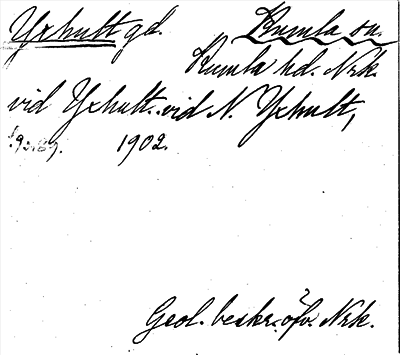 Yxhult gd. Kumla sn.
Kumla hd. Nrk.
vid Yxhult. vid N. Yxhult,
1902.
Geol. beskr. öfv. Nrk.